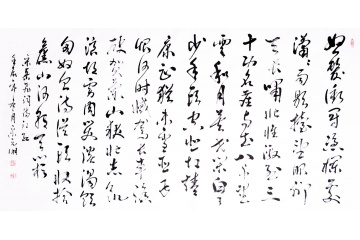 怒髮衝冠憑欄處
瀟瀟雨歇抬望眼仰
天長嘯壯懷激烈三
十功名塵與土八千里路
雲和月莫等閒白了
少年頭空悲切靖
康恥猶未雪臣子
恨何時滅駕長車踏
破賀蘭山缺壯志飢
餐胡虜肉笑談渴飲
匈奴血待從頭收拾
舊山河朝天闕
宋岳飛詞滿江紅